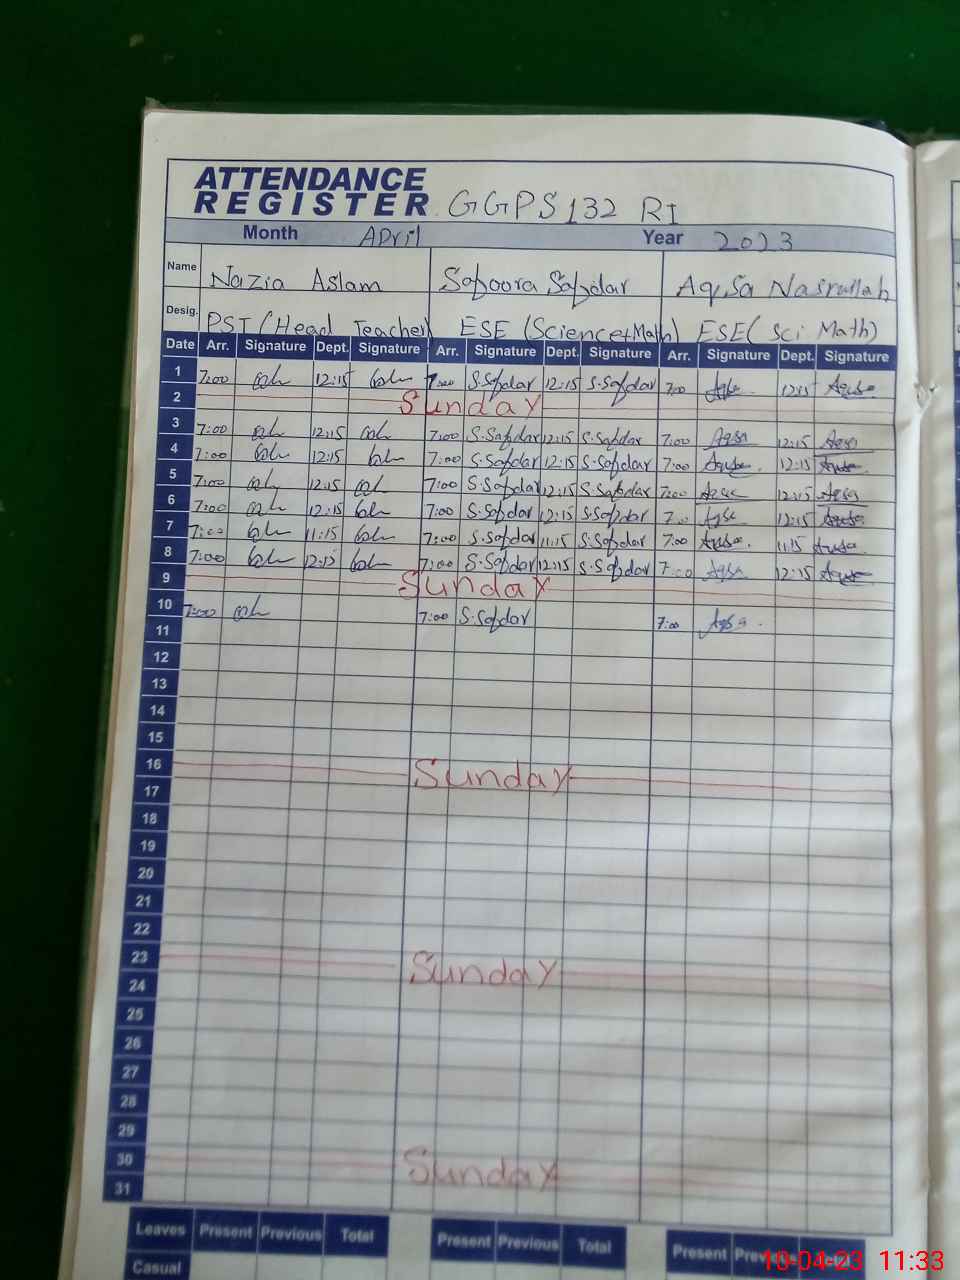 ATTENDANCE
REGISTER GGPS 132 RI
Month April Year 2023
Name Nazia Aslam Safoora Safdar Aqsa Nasrullah
Desig. PST (Head Teacher) ESE (Science+Math) ESE( Sci Math)
Date Arr. Signature Dept. Signature Arr. Signature Dept. Signature Arr. Signature Dept. Signature
1 7:00 12:15 7:00 S.Safdar 12:15 S.Safdar 7:00 Aqsa 12:15 Aqsa
2 Sunday
3 7:00 12:15 7:00 S.Safdar 12:15 S.Safdar 7:00 Aqsa 12:15 Aqsa
4 7:00 12:15 7:00 S.Safdar 12:15 S.Safdar 7:00 Aqsa 12:15 Aqsa
5 7:00 12:15 7:00 S.Safdar 12:15 S.Safdar 7:00 Aqsa 12:15 Aqsa
6 7:00 12:15 7:00 S.Safdar 12:15 S.Safdar 7:00 Aqsa 12:15 Aqsa
7 7:00 11:15 7:00 S.Safdar 11:15 S.Safdar 7:00 Aqsa 11:15 Aqsa
8 7:00 12:15 7:00 S.Safdar 12:15 S.Safdar 7:00 Aqsa 12:15 Aqsa
9 Sunday
10 7:00 7:00 S.Safdar 7:00 Aqsa
11
12
13
14
15
16 Sunday
17
18
19
20
21
22
23 Sunday
24
25
26
27
28
29
30 Sunday
31
Leaves Present Previous Total Present Previous Total Present Previous Total
Casual
10-04-23 11:33